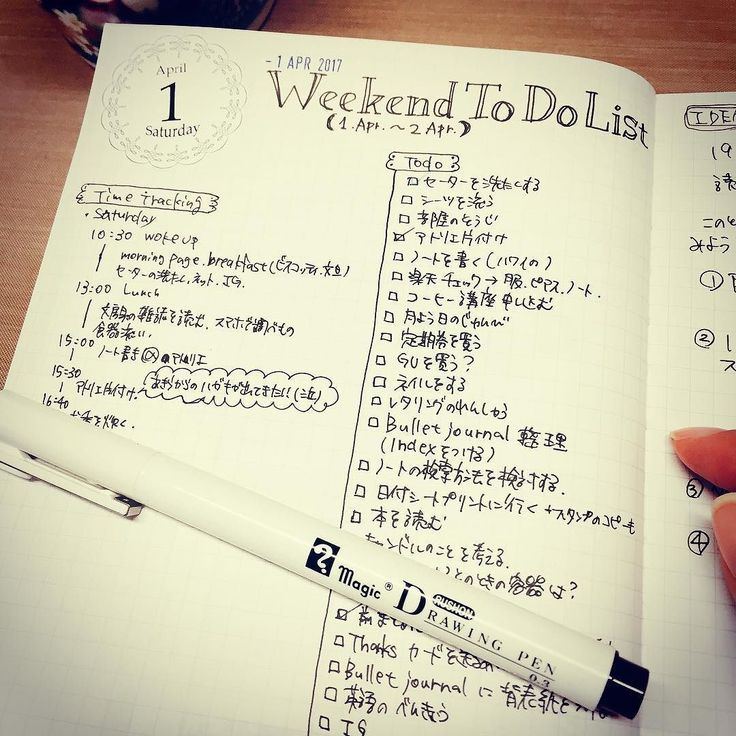 April
1
Saturday
- 1 APR 2017
Weekend To Do List
(1. Apr. ~ 2 Apr.)
Time tracking
・Saturday
10:30 woke up
morning page. breakfast (ビスコッティ.
セーターの洗たく. ネット. IG.
13:00 Lunch
文房具の雑誌を読む. スマホで調べもの
食器洗い.
15:00 ノート書き アトリエ
15:30
アトリエ片付け.
16:40
Todo
□ セーターを洗たくする
□ シーツを洗う
□ 部屋のそうじ
☑ アトリエ片付け
□ ノートを書く(ハワイの)
□ 楽天チェック→服.ピアス.ノート.
□ コーヒー講座申し込む
□ 月よう日のじゅんび
□ 定期券を買う
□ GUを買う?
□ ネイルをする
□ レタリングのれんしゅう
□ Bullet journal 整理
(Indexをつける)
□ ノートの検索方法を検討する.
□ 日付シートプリントに行く +スタンプのコピーも
□ 本を読む
キャンドルのことを考える.
とのときの容器は?
□ Thanks カードを
□ Bullet journal に背表紙を
□ 英語のべんきょう
□ IG
Magic ® DRAWING PEN
RUSHON
0.3
IDE
19
読
このと
みよう
①
②
ス
③
④